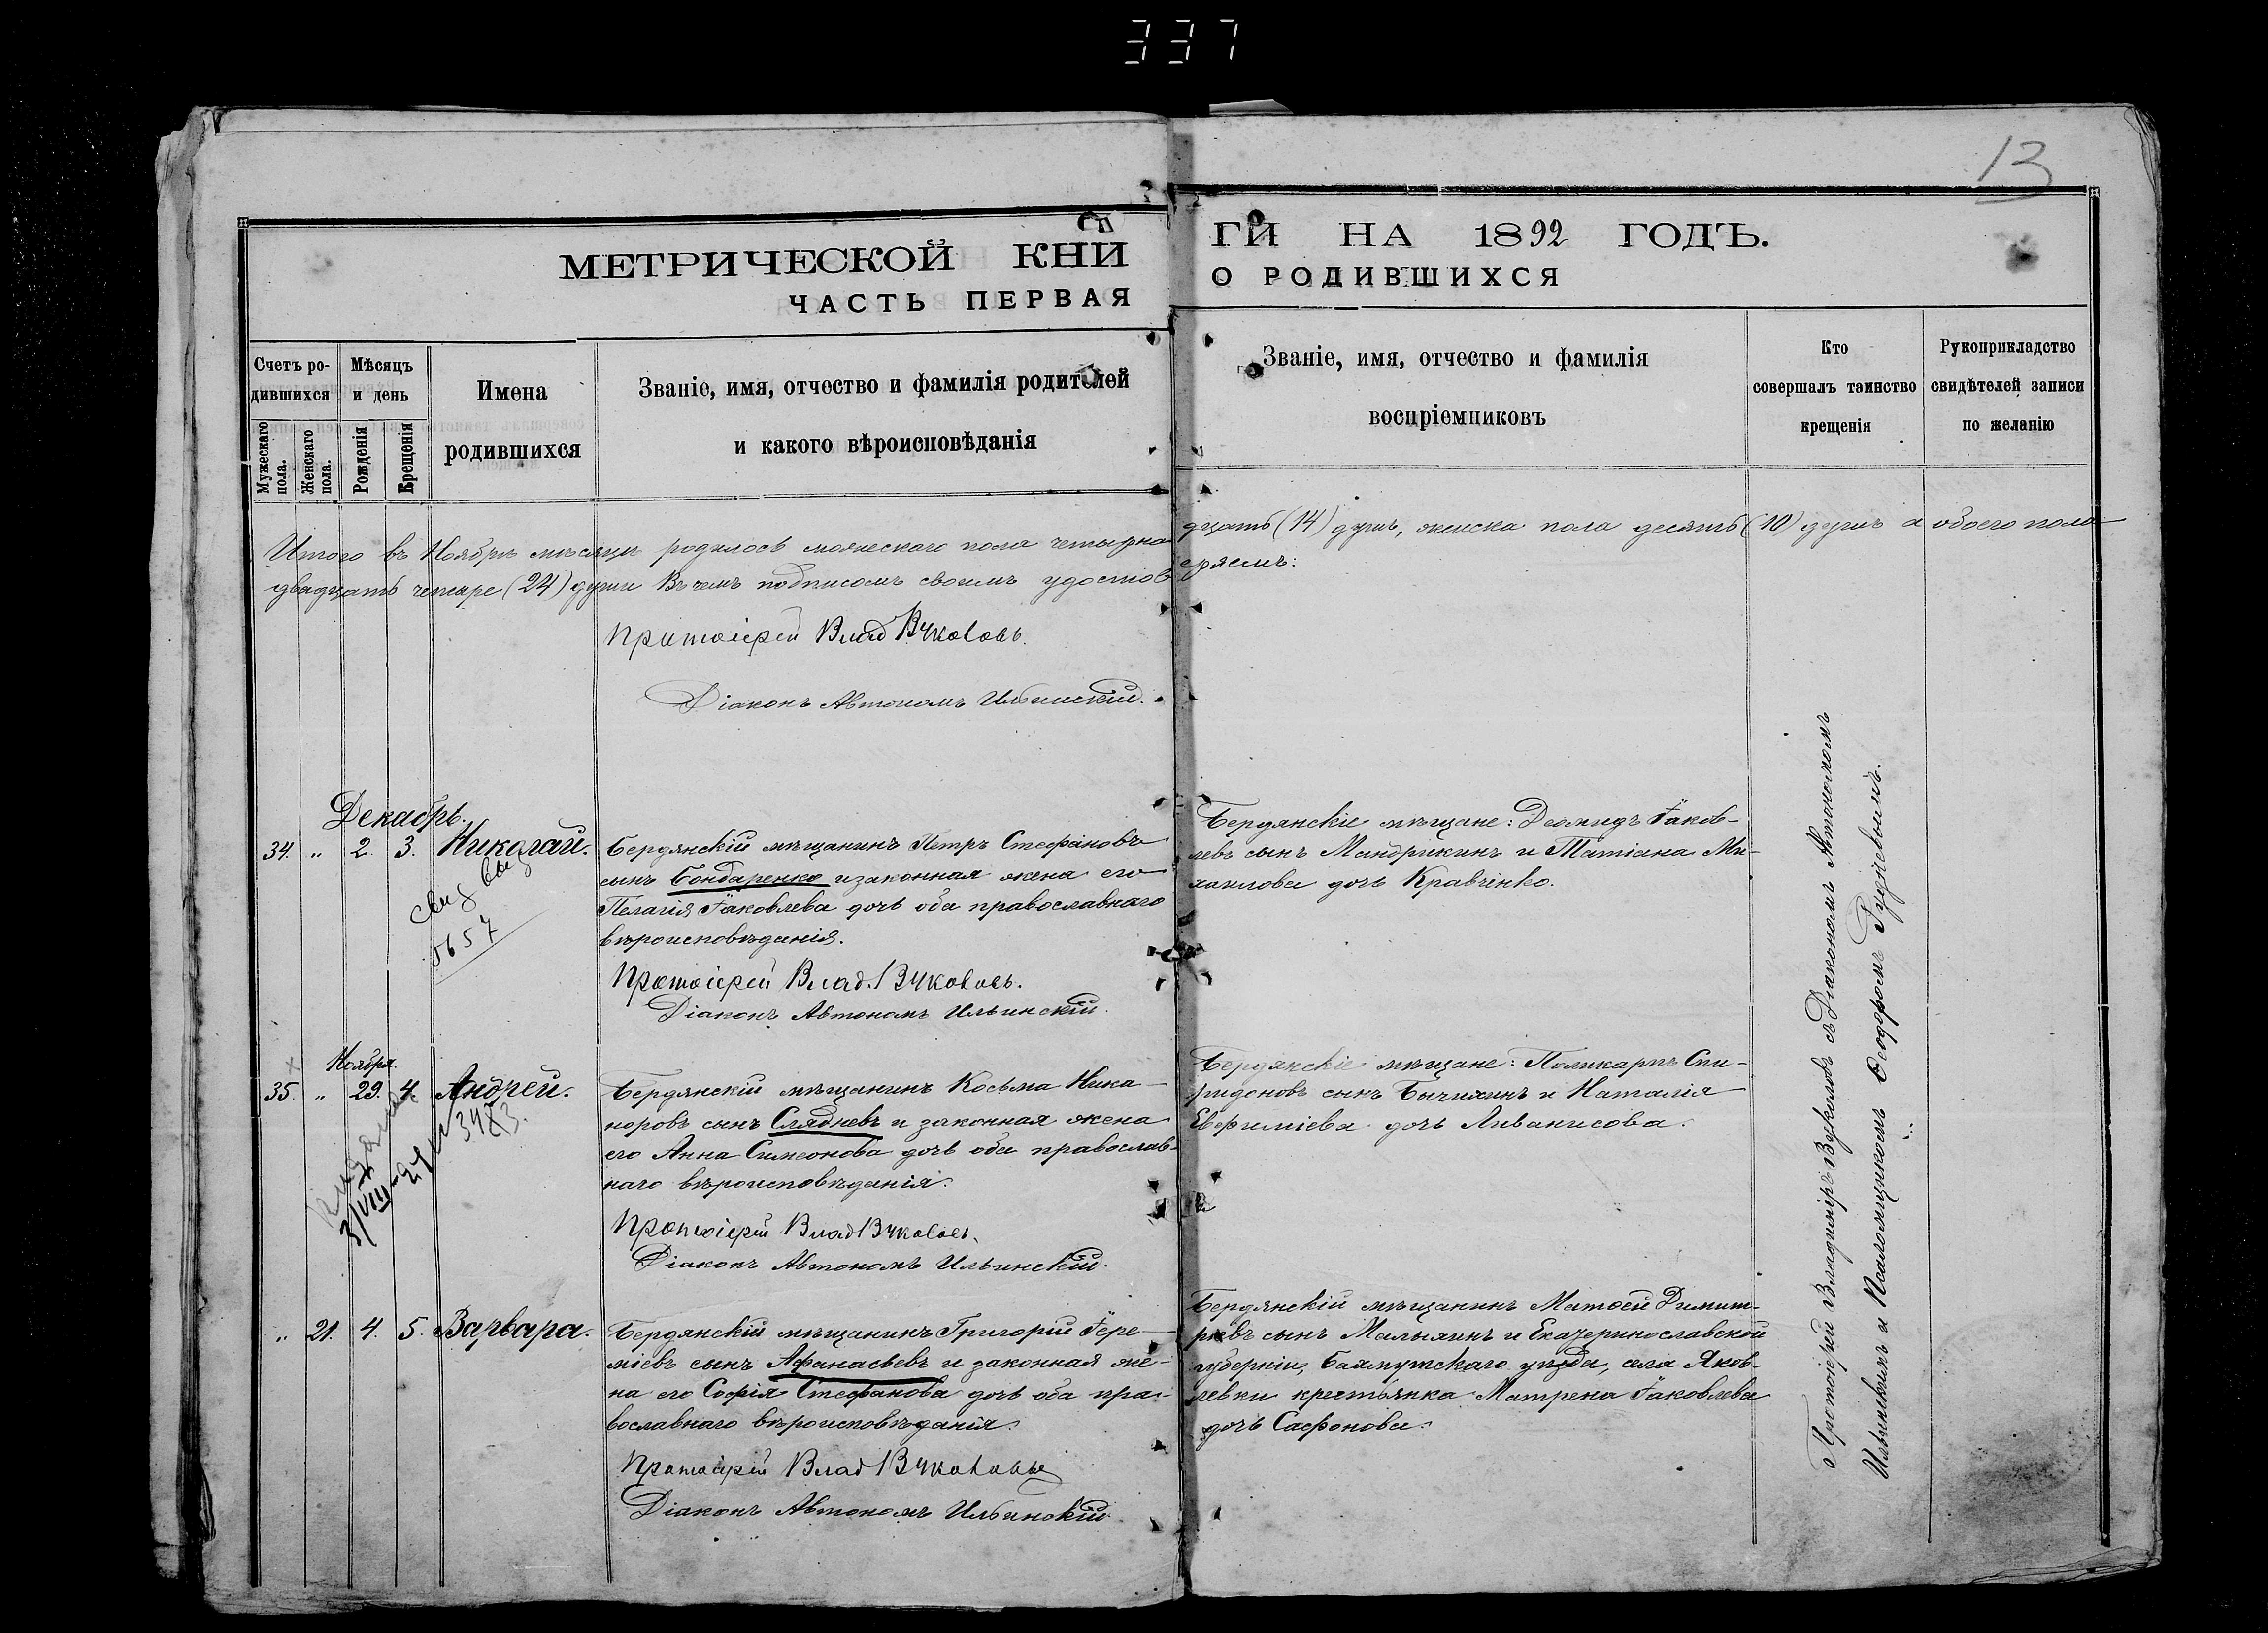 337
13
МЕТРИЧЕСКОЙ КНИ
ГИ НА 1892 ГОДЪ.
ЧАСТЬ ПЕРВАЯ
О РОДИВШИХСЯ
Счетъ ро-
дившихся
Мѣсяцъ
и день
Мужескаго
пола.
Женскаго
пола.
Рожденія
Крещенія
Имена
родившихся
Званіе, имя, отчество и фамилія родителей
и какого вѣроисповѣданія
Званіе, имя, отчество и фамилія
воспріемниковъ
Кто
совершалъ таинство
крещенія
Рукоприкладство
свидѣтелей записи
по желанію
Итого въ Ноябрѣ мѣсяцѣ родилось мужескаго пола четырна
дцать (14) душъ, женска пола десять (10) душъ а обоего пола
двадцать четаре (24) души Въ чемъ подписомъ своимъ удостов
ѣряемъ:
Протоіерей Влад Вуколовъ.
Діаконъ Автономъ Ильинскій.
Декабрь.
34. „ 2. 3. Николай.
свид выд
5657
Бердянскій мѣщанинъ Петръ Стефановъ
сынъ Бондаренко и законная жена его
Пелагія Іаковлева дочь оба православнаго
вѣроисповѣданія.
Протоіерей Влад. Вуколовъ.
Діаконъ Автономъ Ильинскій.
Бердянскіе мѣщане: Деомидъ Іаков-
левъ сынъ Мандрикинъ и Татіана Ми-
хаилова дочь Кравченко.
Ноября.
35. „ 29. 4. Андрей.
3/VIII
3483.
Бердянскій мѣщанинъ Косьма Ника-
норовъ сынъ Слядневъ и законная жена
его Анна Симеонова дочь оба православ-
наго вѣроисповѣданія.
Протоіерей Влад Вуколовъ.
Діаконъ Автономъ Ильинскій.
Бердянскіе мѣщане: Поликарпъ Спи-
ридоновъ сынъ Бычихинъ и Наталія
Евфиміева дочь Ливанисова.
„ 21. 4. 5. Варвара.
Бердянскій мѣщанинъ Григорій Іере-
міевъ сынъ Афанасьевъ и законная же-
на его Софія Стефанова дочь оба пра-
вославнаго вѣроисповѣданія.
Протоіерей Влад Вуколовъ
Діаконъ Автономъ Ильинскій
Бердянскій мѣщанинъ Матѳей Димит-
ріевъ сынъ Малыхинъ и Екатеринославской
губерніи, Бахмутскаго уѣзда, села Яков-
левки крестьянка Матрена Іаковлева
дочь Сафонова.
Протоіерей Владиміръ Вуколовъ съ Діакономъ Автономомъ
Ильинскимъ и Псаломщикомъ Ѳеодоромъ Рудіевымъ.